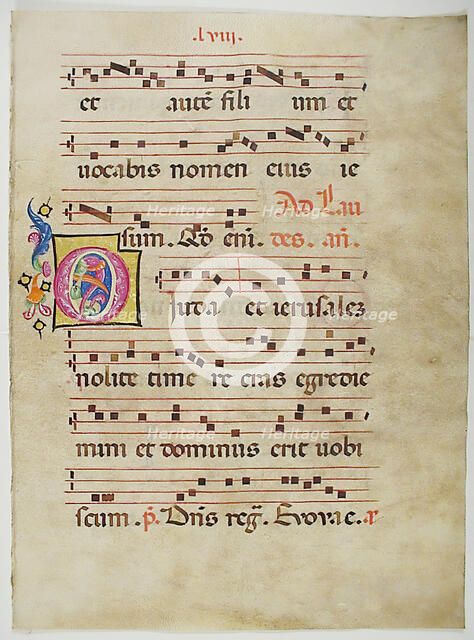 .lviij.
et autē fili um et
uocabis nomen eius ie
Ad Lau
sum. Q̄d eni. des. an̄.
O iuda et ierusalez
nolite time re cras egredie
mini et dominus erit uobi
scum. p̄. Dn̄s reg̃. Evovae.
Heritage
Heritage
Heritage
Heritage
Heritage
Heritage